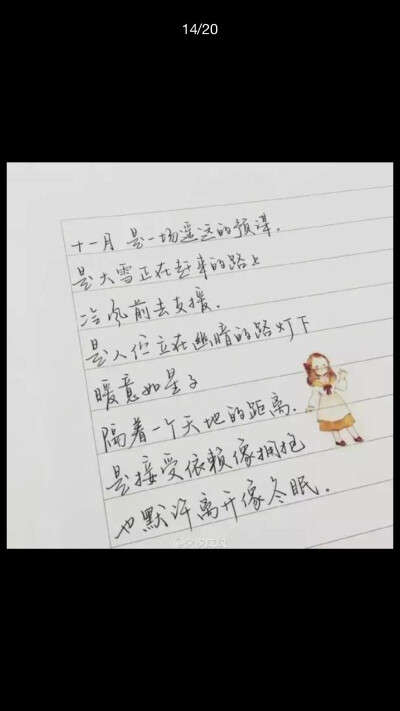 14/20
十一月 是一场遥远的预谋.
是大雪正在赶来的路上
冷风前去支援.
是人伫立在幽暗的路灯下
暖意如星子
隔着一个天地的距离.
是接受依赖像拥抱
也默许离开像冬眠.